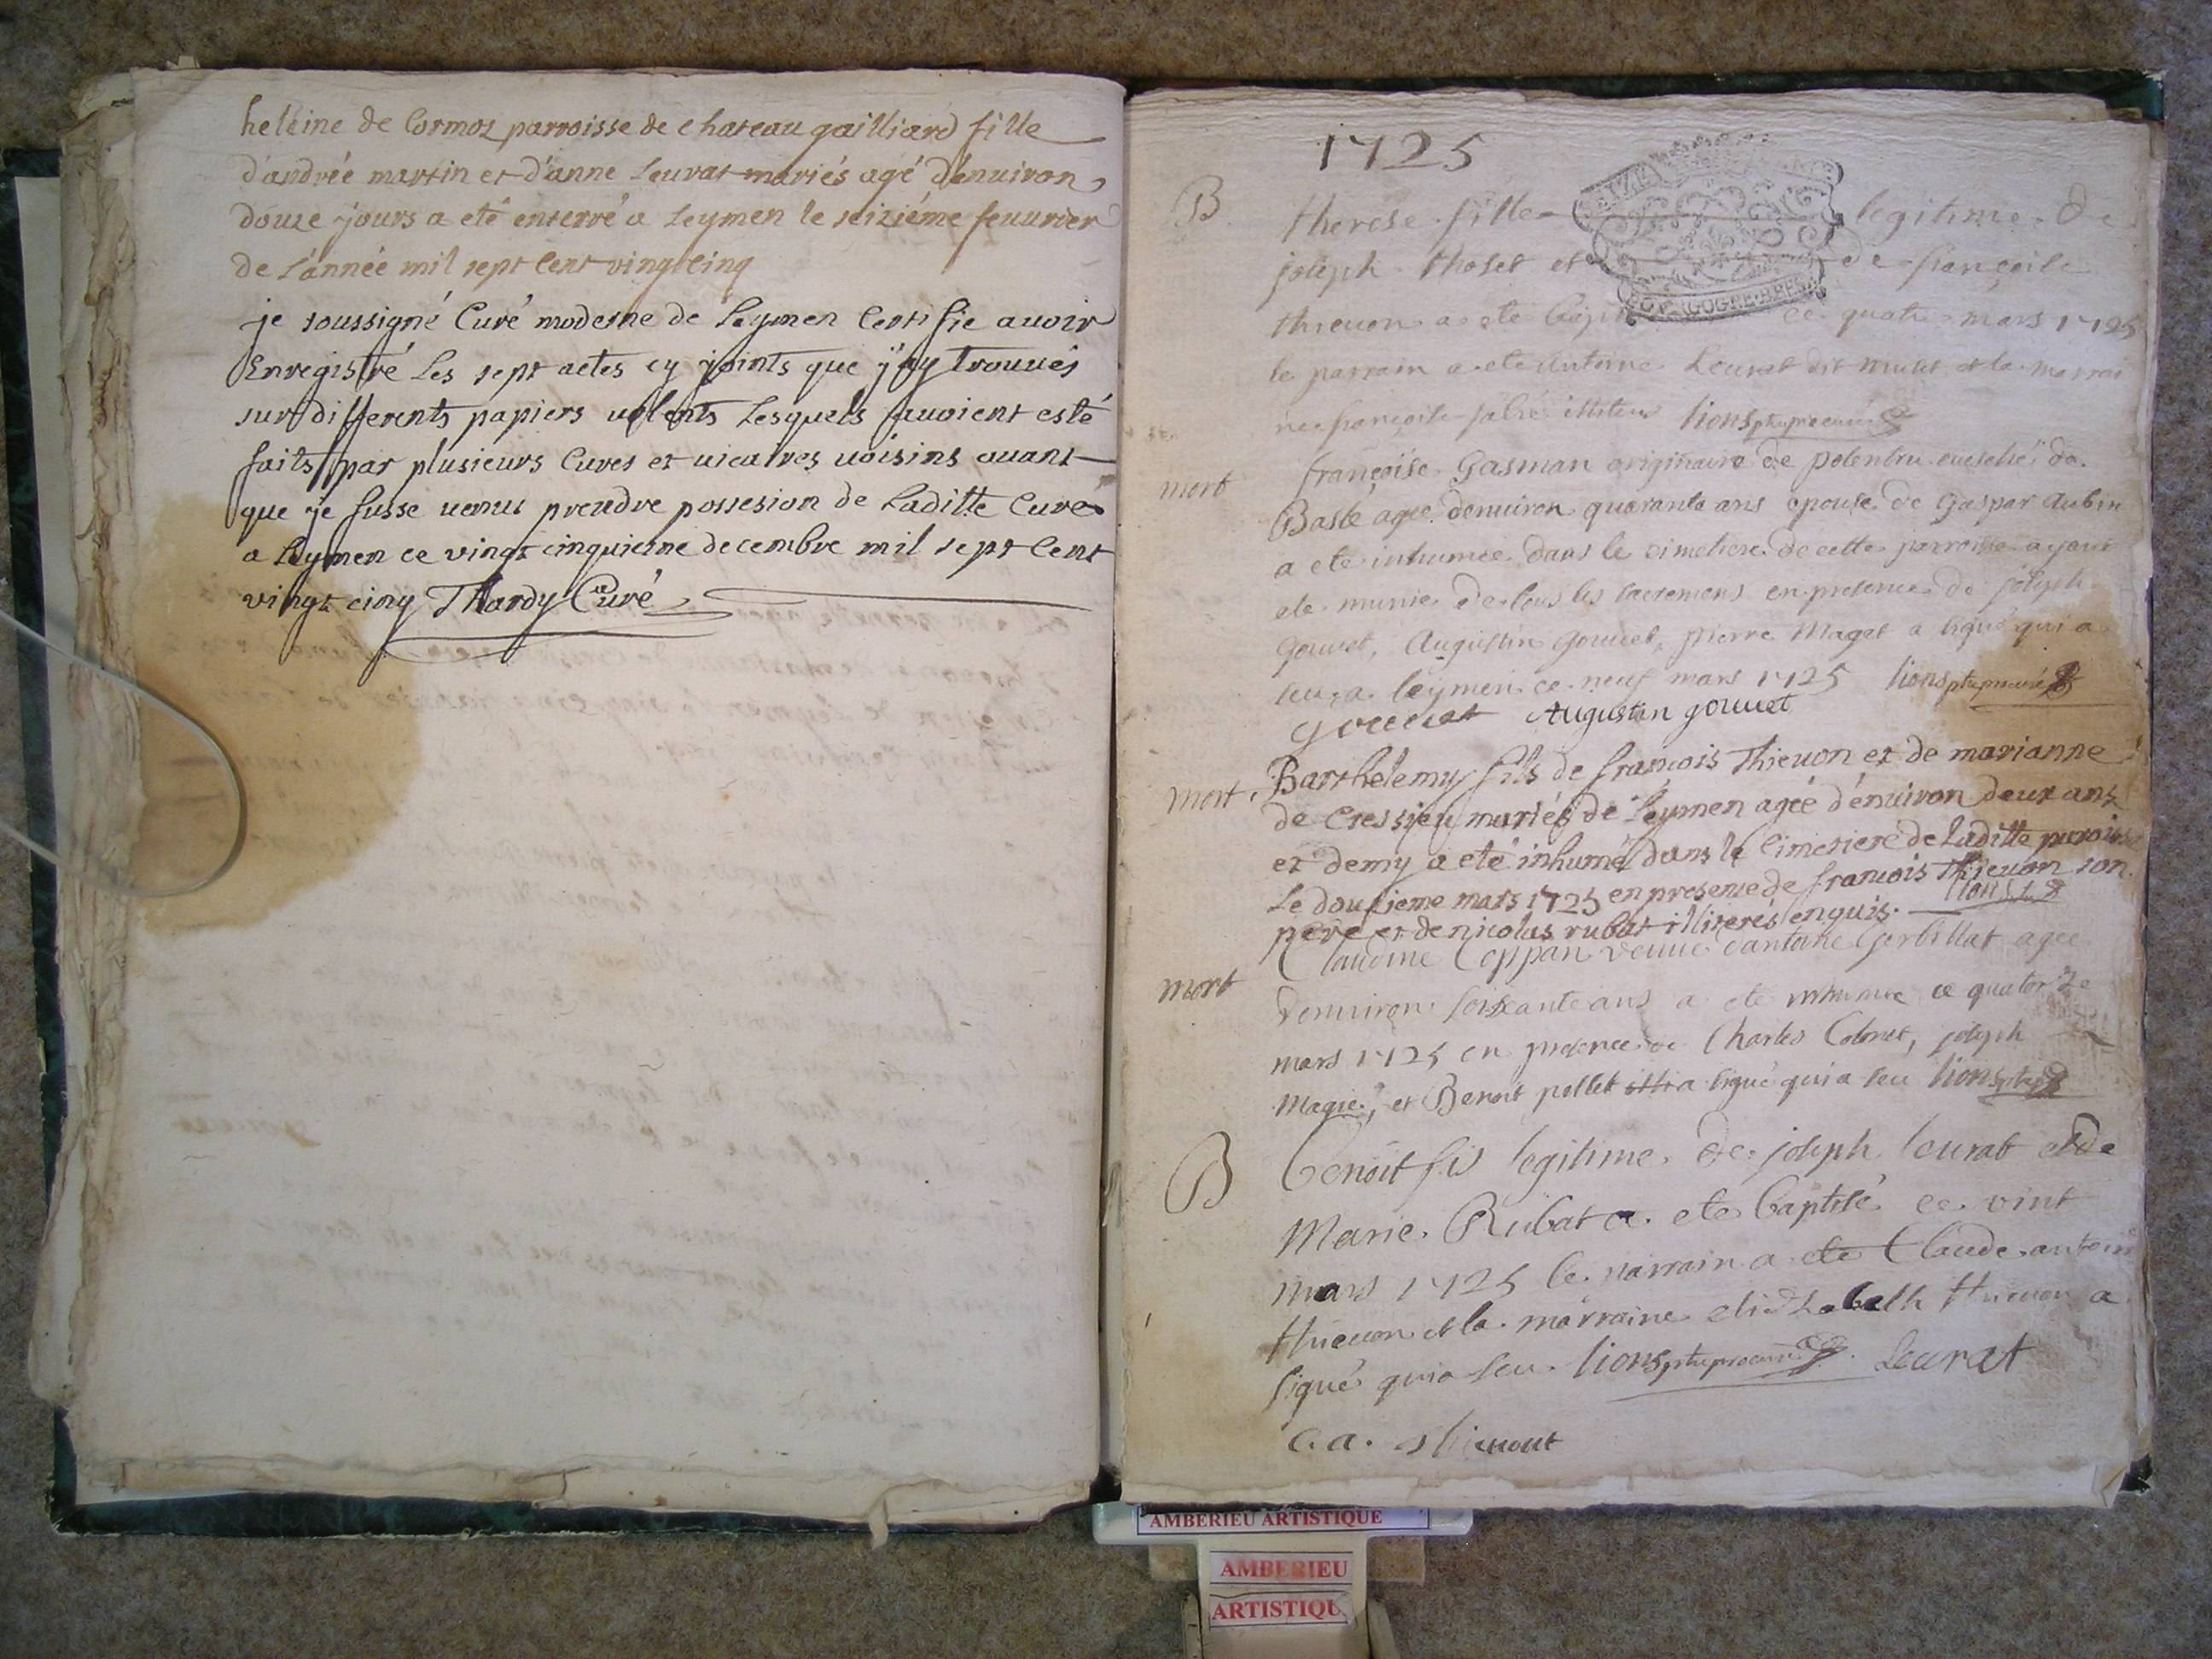 heleine de Cormoz parroisse de chateau gailliard fille
d'andrée martin et d'anne Leurat mariés agé d'enuiron
douze jours a eté enterré a Leymen le seiziéme feuurier
de L'année mil sept Cent vingt cinq
je soussigné Curé moderne de Leymen Certifie auoir
Enregistré Les sept actes cy joints que j'ay trouués
sur differents papiers uolents Lesquels auoient esté
faits par plusieurs Cures et uicaires uoisins auant
que je fusse uenu prendre possesion de Laditte Cure
a Leymen ce vingt cinquieme decembre mil sept Cent
vingt cinq Thardy Curé
1725
B
therese fille legitime de
joseph thoset et de françoise
thieuon a ete ce quatre mars 1725
le parrain a ete Antoine Leurat dit mulet et la marrai
ne françoise illiteres lions
mort
françoise Gasman originaire de polentru eueche de
Basle agée denuiron quarante ans epouse de Gaspar Aubin
a ete inhumée dans le cimetiere de cette parroisse ayant
ete munie de tous les sacremens en presence de joseph
gouuet, Augustin gouuet, pierre Maget a signé qui a
seu a leymen ce neuf mars 1725 lions
gouuet Augustin gouuet
mort
Barthelemy fils de francois Thieuon et de marianne
de Cressieu mariés de Leymen agée d'enuiron deux ans
et demy a eté inhumé dans le Cimetiere de Laditte paroisse
Le douzieme mars 1725 en presense de francois Thieuon son
pere et de nicolas rubat illiterés enquis. lions
mort
Claudine Coppan veuue dantoine Gerbillat agee
denuiron soixante ans a ete inhumée ce quatorze
mars 1725 en presence de Charles Colonet, joseph
Magie, et Benoit pollet a signé qui a seu lions
B
Benoit fis legitime de joseph leurat et de
Marie Rubat a ete baptisé ce vint
mars 1725 le parrain a ete Claude antoine
thieuon et la marraine elidzabelh thieuon a
signé qui a seu lions Leurat
C. a. thieuont
AMBERIEU ARTISTIQUE
AMBERIEU
ARTISTIQU